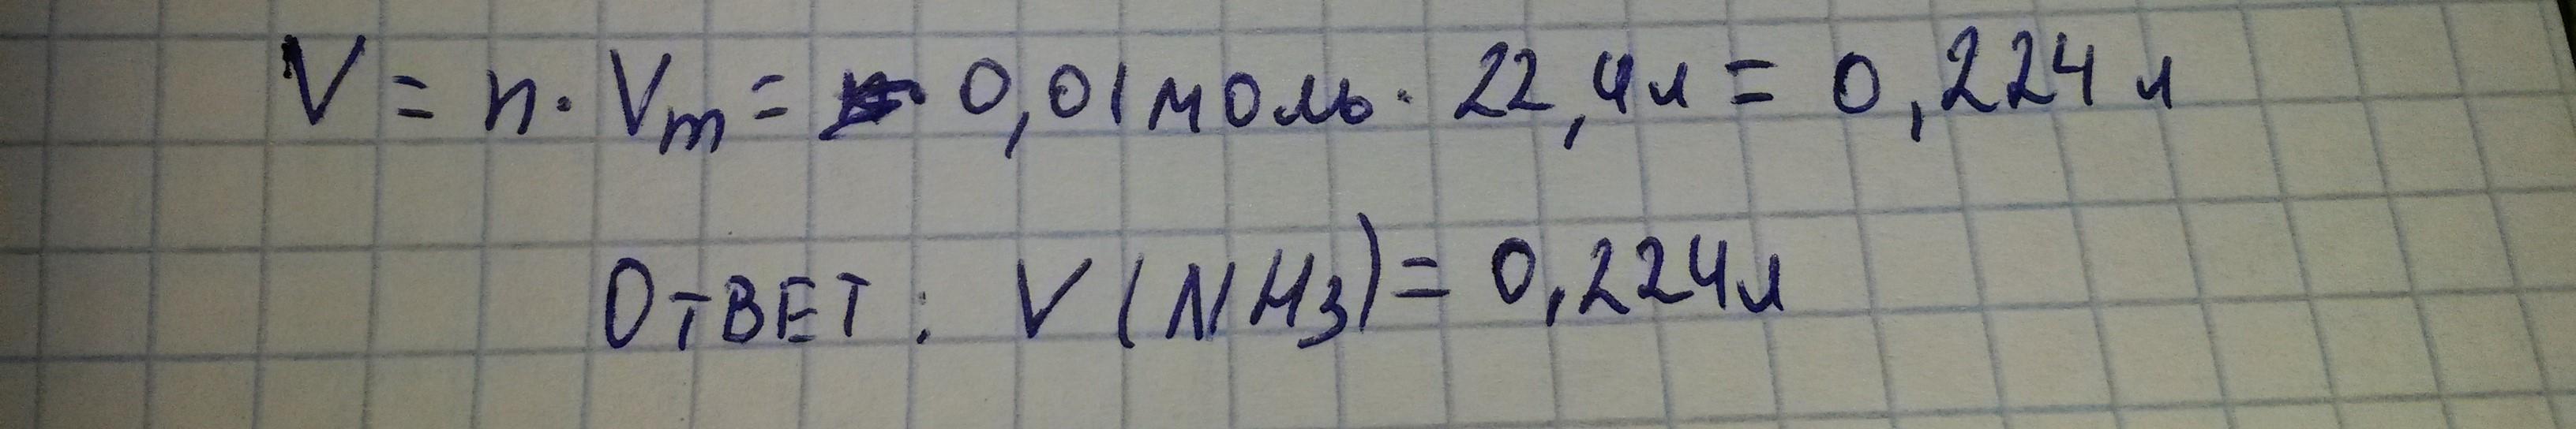 V = n · Vm = 0,01 моль · 22,4л = 0,224 л
Ответ : V (NH3) = 0,224л